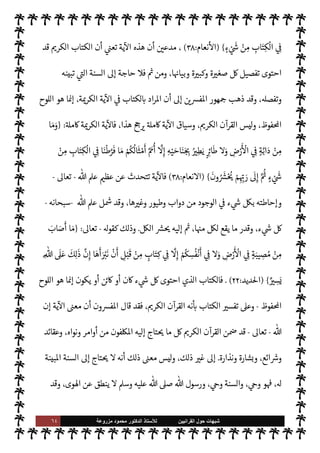 فِي الْكِتَابِ مِنْ شَيْءٍ﴾ (الأنعام:٣٨) ، مدعين أن هذه الآية تعني أن الكتاب الكريم قد
احتوى تفصيل كل صغيرة وكبيرة وبيانها، ومن ثم فلا حاجة إلى السنة التي تبينه
وتفصله، وقد ذهب جمهور المفسرين إلى أن المراد بالكتاب في الآية الكريمة، إنما هو اللوح
المحفوظ، وليس القرآن الكريم، وسياق الآية كاملة يرجح هذا، فالآية الكريمة كاملة: ﴿وَمَا
مِنْ دَابَّةٍ فِي الْأَرْضِ وَلَا طَائِرٍ يَطِيرُ بِجَنَاحَيْهِ إِلَّا أُمَمٌ أَمْثَالُكُمْ مَا فَرَّطْنَا فِي الْكِتَابِ مِنْ
شَيْءٍ ثُمَّ إِلَى رَبِّهِمْ يُحْشَرُونَ﴾ (الانعام:٣٨) فالآية تتحدث عن عظيم علم الله - تعالى -
وإحاطته بكل شيء في الوجود من دواب وطيور وغيرها، وقد شمل علم الله -سبحانه -
كل شيء، وقدر ما يقع لكل منها، ثم إليه يحشر الكل. وذلك كقوله - تعالى: ﴿مَا أَصَابَ
مِنْ مُصِيبَةٍ فِي الْأَرْضِ وَلَا فِي أَنْفُسِكُمْ إِلَّا فِي كِتَابٍ مِنْ قَبْلِ أَنْ نَبْرَأَهَا إِنَّ ذَلِكَ عَلَى اللَّهِ
يَسِيرٌ﴾ (الحديد:٢٢) . فالكتاب الذي احتوى كل شيء كان أو كائن أو يكون إنما هو اللوح
المحفوظ . وعلى تفسير الكتاب بأنه القرآن الكريم، فقد قال المفسرون أن معنى الآية إن
الله - تعالى - قد ضمن القرآن الكريم كل ما يحتاج إليه المكلفون من أوامر ونواه، وعقائد
وشرائع، وبشارة ونذارة، إلى غير ذلك، وليس معنى ذلك أنه لا يحتاج إلى السنة المبينة
له، فهو وحي، والسنة وحي، ورسول الله صلى الله عليه وسلم لا ينطق عن الهوى، وقد
٦٤ شبهات حول القرآنيين للأستاذ الدكتور محمود مزروعة